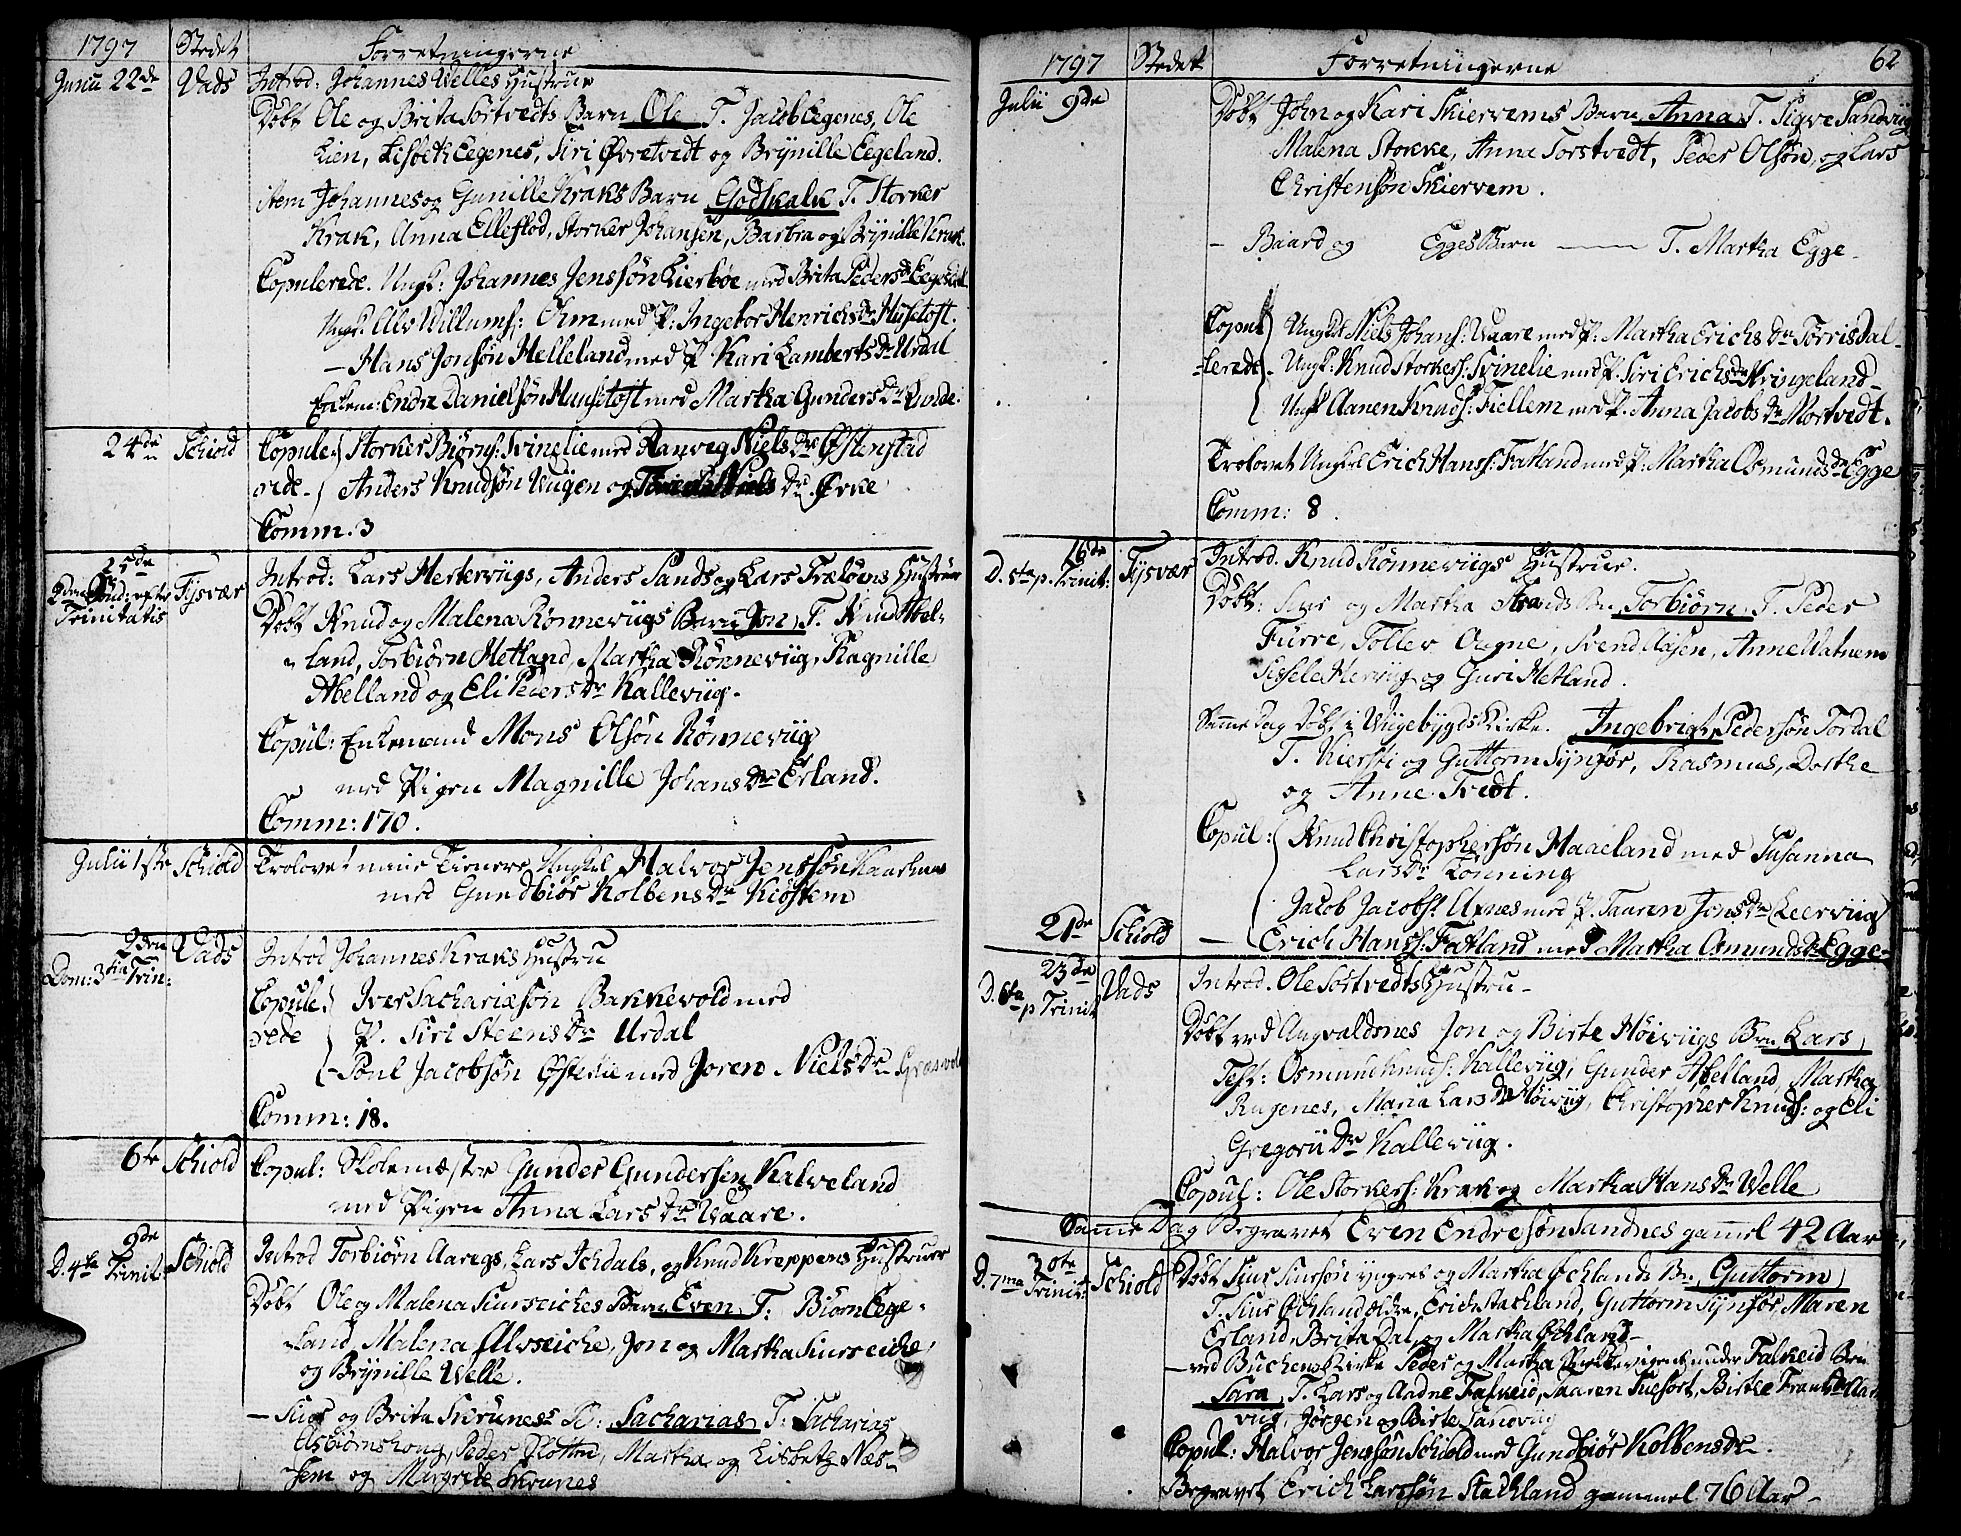 1797 Stedet Forretningerne
Junii 22de Vads Introd: Johannes Welles Hustrue
Døbt Ole og Brita Tortvedts Barn Ole T. Jacob Eegenes, Ole
Lien, Lisbeth Eegenes, Siri Øvretvedt og Brynille Eegeland.
item Johannes og Gunille Kraks Barn Godskalk T. Storker
Krak, Anna Elleflod, Storker Johansen, Barbra og Brynille Krak.
Copulerede. Ungk: Johannes Jenssøn Lierbøe med Brita Peders Dr
Ungk: Alv Villums: Ohm med P: Ingebor Henrichs Dr Hustoft.
— Hans Jonsøn Helleland med P Kari Lamberts Dr Urdal
Enkem: Endre Danielsøn Huustoft med Martha Gunders Dr
24de Schiold Copule- Storker Biørns: Svinelie med Ranveg Niels Dr Østenstad
rede- Anders Knudsøn Viigen og Niels Dr Øvke
Comm. 3
25de
2den Sønd: efter Tysvær Introd: Lars Hertervügs, Anders Sands og Lars Træløens Hustruer
Trinitatis Døbt Knud og Malena Rønnevügs Barn Jon T. Knud Abel-
land, Torbiørn Hetland, Martha Rønnevüg, Ragnille
Abelland og Eli Peders Dr Kallevüg.
Copul: Enkemand Mons Olsøn Rønnevüg
med Pigen Magnille Johans Dr Erland.
Comm: 170.
Julii 1ste Schiold Trolovet min Tienere Ungkl Halvor Jenssøn
med Gundbiør Kolbens Dr Kiøstem
2den Vads Introd Johannes Kraks Hustru
Dom: 3tia Trin: Copule- Iver Sachariæsøn Bakkevold med
rede P. Siri Steens Dr Urdal
- Povl Jacobsøn Østelie med Joren Niels Dr
Comm: 18.
6te Schiold Copul: Skolemæster Gunder Gundersen Kalveland
med Pigen Anna Lars Dr Vaare.
9de
D. 4ta Trinit: Schiold Introd Torbiørn Aaregs, Lars Ichdals, og Knud Kreppens Hustruer
Døbt Ole og Malena Siurseiches Barn Even T: Biørn Eege-
land, Malena Alvseiche, Jon og Martha Siurseiche,
og Brynille Velle.
— Siur og Brita Skrunes B: Sacharias T: Sacharias
Asbiørnshoug, Peder Slotten, Martha og Lisbeth Næs-
hem og Margrete Skrunes
1797 Stedet Forretningerne 62
Julii 9de Døbt John og Kari Skiervems Barn Anna T. Sigve Sandvüg
Malena Stokke, Anna Torstvedt, Peder Olsøn, og Lars
Christensøn Skiervem.
— Baard og Egges Barn — T. Martha Egge.
Copul- Ungkl Niels Johans: Waare med P: Martha Erichs Dr Torrisdal-
lerede- Ungk: Knud Storkers: Svinelie med P. Siri Erichs Dr Kringeland-
Ungkl Aanen Knuds: Fiellem med P. Anna Jacobs Dr Mortvedt.
Trolovet Ungkl Erich Hanss: Fatland med P: Martha Osmunds Dr Egge
Comm: 8.
16de
D. 5ta p. Trinit: Tysvær Introd. Knud Rønnevügs Hustrue.
Døbt: Siur og Martha Strands Bn Torbiørn T. Peder
Furre, Tollev Ougne, Svend Aasen, Anne Vatnem
Sissele Hervüg og Guri Hetland.
Samme Dag Døbt i Vügebygds Kirke. Ingebrigt Pedersøn Tordal
T. Kiersti og Guttorm Synfør, Rasmus, Dorthe
og Anne Tvedt.
Copul: Knud Christophersøn Haaeland med Susanna
Lars Dr Tønning
Jacob Jacobs: Uxnes med P. Taaren Jons Dr Leervüg
21de Schiold — Erich Hanss: Fatland med Martha Osmunds Dr Egge-
23de
D. 6ta p Trinit Vads Introd. Ole Tortvedts Hustru-
Døbt ved Augvaldsnes Jon og Birte Høivügs Brn Lars
Test: Osmund Knuds: Kallevüg, Gunder Abelland, Martha
Rugenes, Maria Lars Dr Høivüg, Christopher Knuds: og Eli
Gregorii Dr Kallevüg.
Copul: Ole Storkers: Krak og Martha Hans Dr Velle
Samme Dag Begravet Even Endresøn Sandnes gammel 42 Aar
30te
D. 7ma Trinit: Schiold Døbt Siur Siursøn yngres og Martha Øchlands Bn: Guttorm
T. Siur Øchland ældre, Erich Stachland, Guttorm Synfør, Maren
Erland, Brita Dal og Martha Øchland-
— ved Buchens Kirke Peder og Martha under Falkeid Brn
Sara T. Lars og Aadne Falkeid, Maaren Tuefort, Birthe
vüg, Jørgen og Birte Sandvüg
Copul: Halvor Jenssøn Schiold med Gundbiør Kolbens Dr.
Begravet Erich Larssøn Stachland gammel 76 Aar-